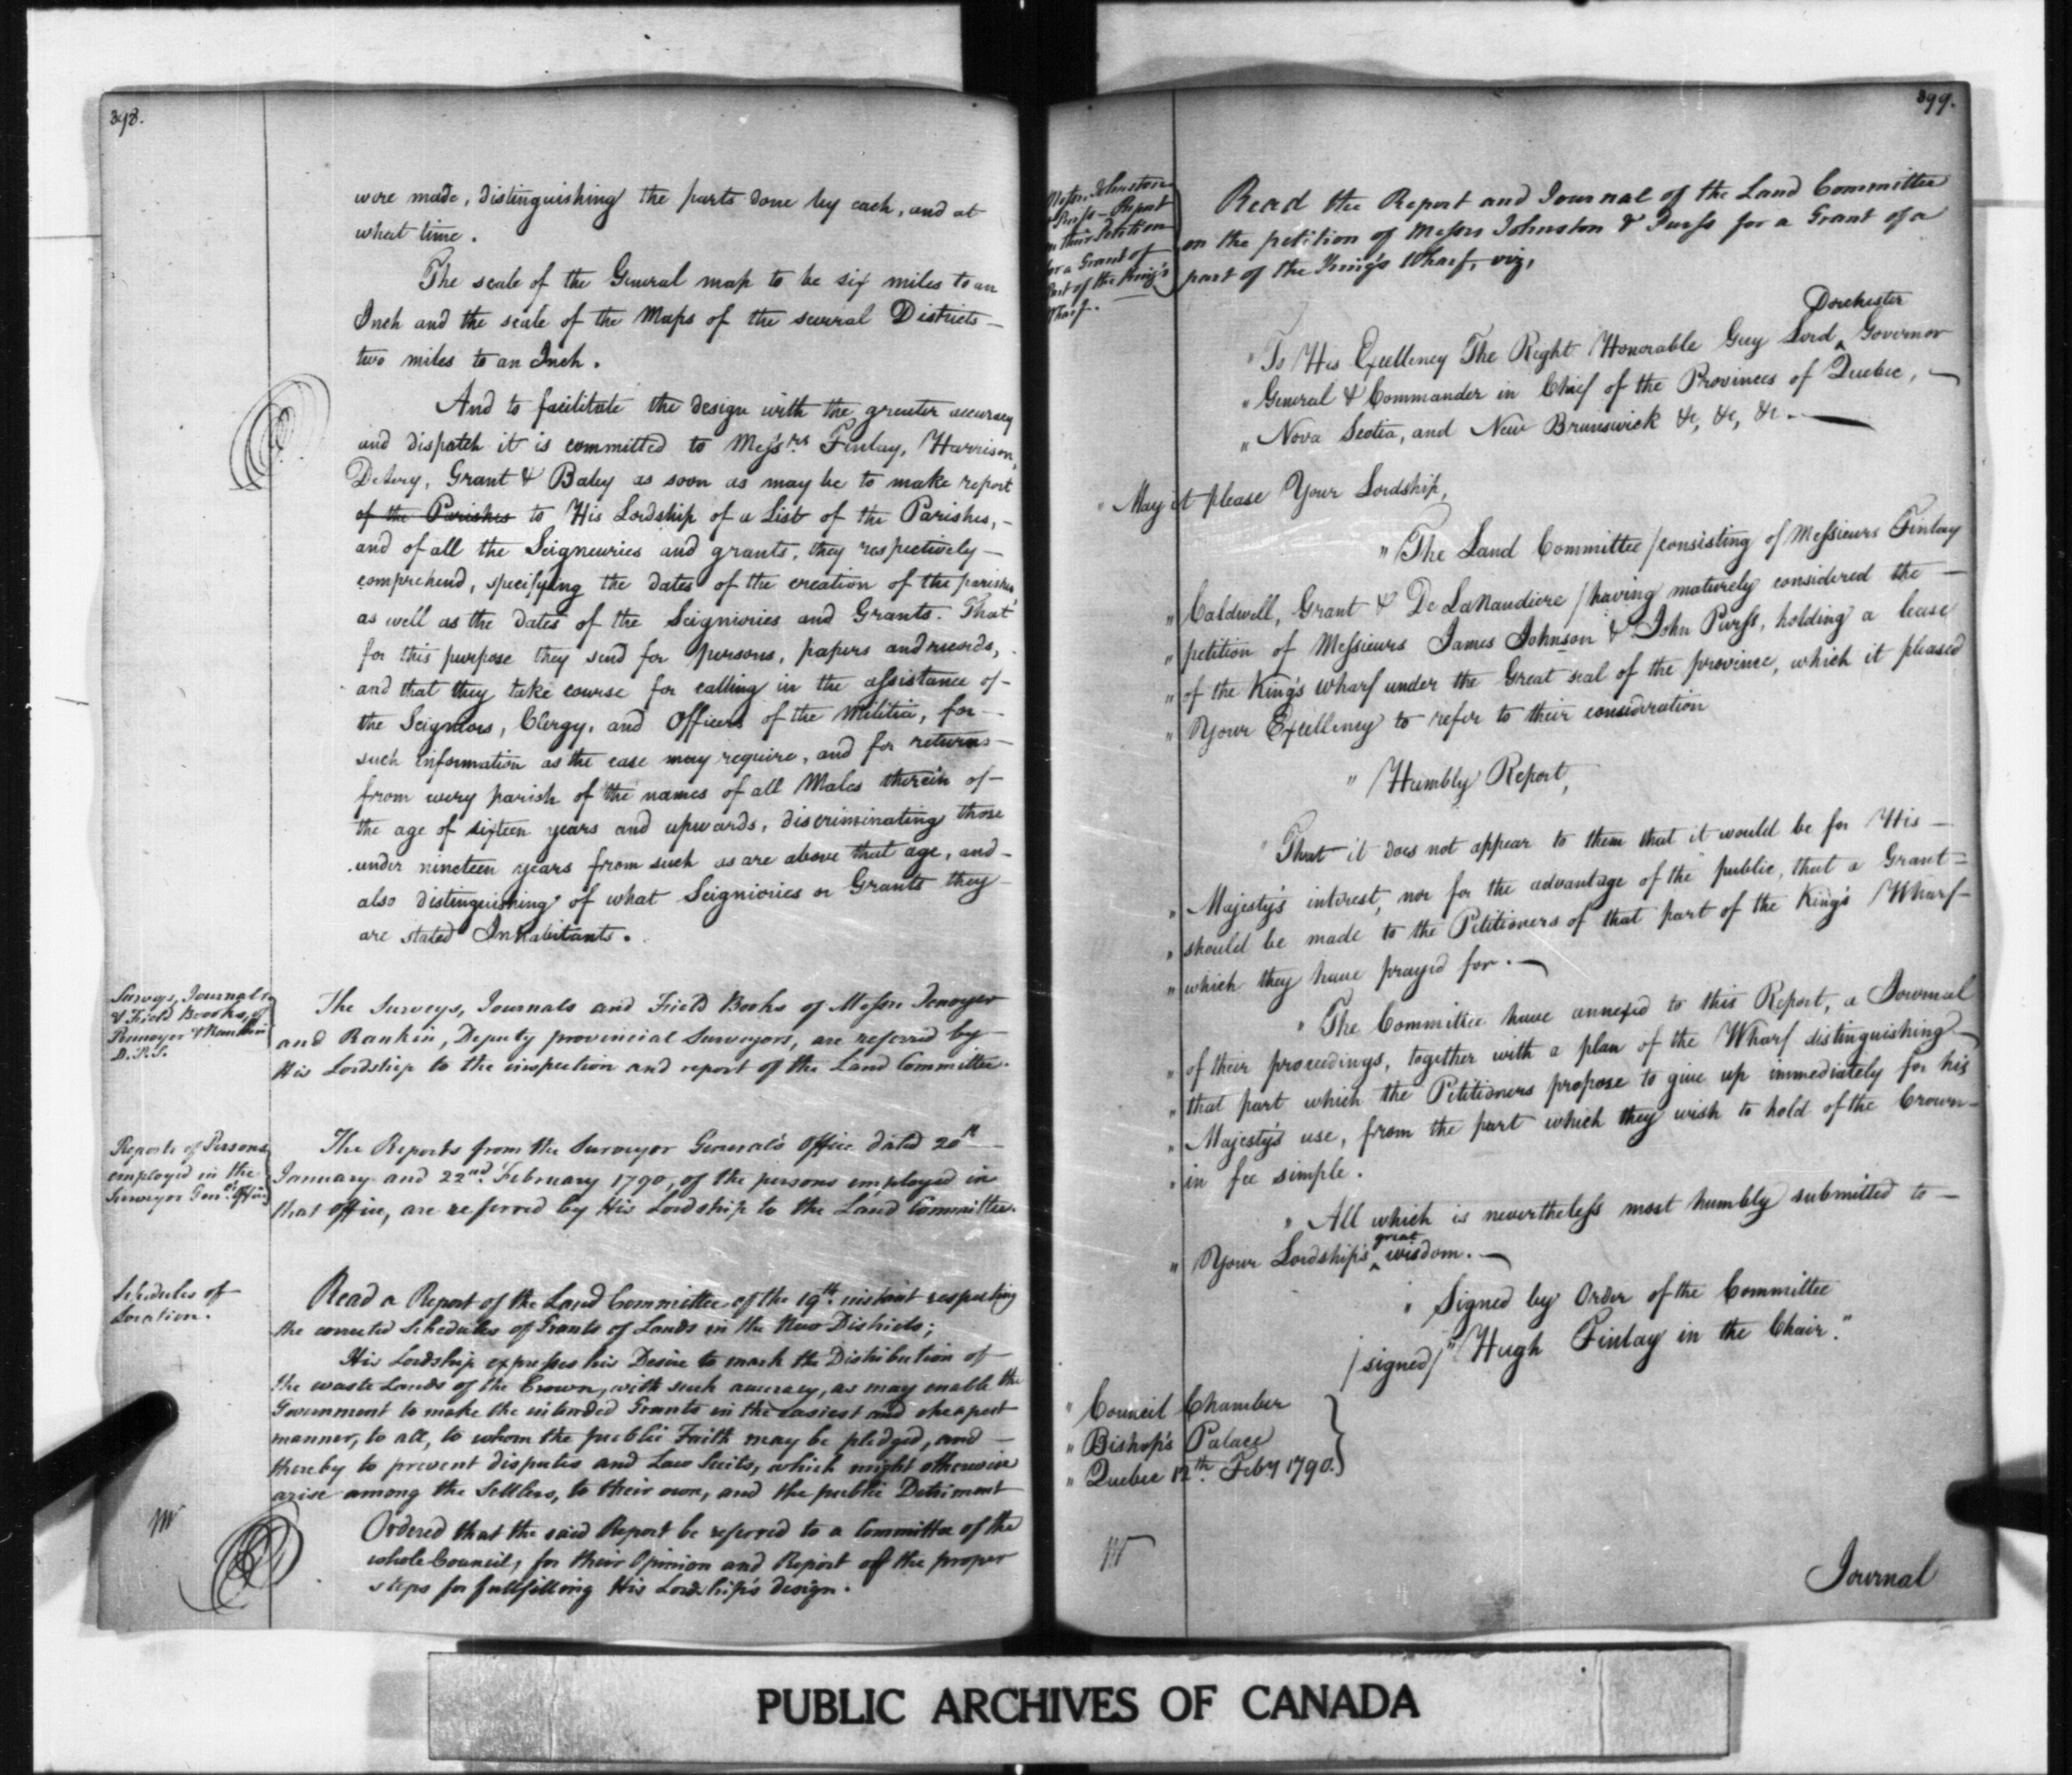 398.
were made, distinguishing the parts done by each, and at
what time.
The scale of the General map to be six miles to an
Inch and the scale of the Maps of the several Districts —
two miles to an Inch.
And to facilitate the design with the greater accuracy
and dispatch it is committed to Mess.rs Finlay, Harrison,
DeLery, Grant & Baby as soon as may be to make report
of the Parishes to His Lordship of a List of the Parishes, —
and of all the Seigneuries and grants, they respectively —
comprehend, specifying the dates of the creation of the parishes
as well as the dates of the Seigniories and Grants. That
for this purpose they send for persons, papers and records,
and that they take course for calling in the assistance of —
the Seigniors, Clergy, and Officers of the Militia, for —
such information as the case may require, and for returns —
from every parish of the names of all Males therein of —
the age of sixteen years and upwards, discriminating those
under nineteen years from such as are above that age, and —
also distinguishing of what Seigniories or Grants they —
are stated Inhabitants.
Surveys, Journals
& Field Books of
Pennoyer & Rankin
D.P.S.
The Surveys, Journals and Field Books of Messrs Penoyer
and Rankin, Deputy provincial Surveyors, are referred by
His Lordship to the inspection and report of the Land Committee.
Reports of Persons
employed in the
Surveyor Gen.l's Office
The Reports from the Surveyor General's Office dated 20th
January and 22nd February 1790, of the persons employed in
that office, are referred by His Lordship to the Land Committee.
Schedules of
Location.
Read a Report of the Land Committee of the 19th instant respecting
the corrected Schedules of Grants of Lands in the New Districts;
His Lordship expresses his Desire to mark the Distribution of
the waste Lands of the Crown, with such accuracy, as may enable the
Government to make the intended Grants in the easiest and cheapest
manner, to all, to whom the public Faith may be pledged, and —
thereby to prevent disputes and Law Suits, which might otherwise
arise among the Settlers, to their own, and the public Detriment
Ordered that the said Report be referred to a Committee of the
whole Council, for their Opinion and Report of the proper
steps for fullfilling His Lordship's design.
399.
Messrs Johnston
& Purss — Report
on their Petition
for a Grant of
Part of the King's
Wharf.
Read the Report and Journal of the Land Committee
on the petition of Messrs Johnston & Purss for a Grant of a
part of the King's Wharf, viz,
Dorchester
" To His Excellency The Right Honorable Guy Lord ^ Governor
" General & Commander in Chief of the Provinces of Quebec, —
" Nova Scotia, and New Brunswick &c, &c, &c. —
" May it please Your Lordship,
" The Land Committee / consisting of Messieurs Finlay
" Caldwell, Grant & De LaNaudiere / having maturely considered the —
" petition of Messieurs James Johnson & John Purss, holding a lease
" of the King's Wharf under the Great seal of the province, which it pleased
" Your Excellency to refer to their consideration
" Humbly Report,
" That it does not appear to them that it would be for His —
" Majesty's interest, nor for the advantage of the public, that a Grant =
" should be made to the Petitioners of that part of the King's Wharf —
" which they have prayed for. —
" The Committee have annexed to this Report, a Journal
" of their proceedings, together with a plan of the Wharf distinguishing —
" that part which the Petitioners propose to give up immediately for his
" Majesty's use, from the part which they wish to hold of the Crown —
" in fee simple.
" All which is nevertheless most humbly submitted to —
great
" Your Lordship's ^ wisdom. —
" Signed by Order of the Committee
/ signed / " Hugh Finlay in the Chair."
" Council Chamber
" Bishop's Palace
" Quebec 12th Feby 1790.
Journal
PUBLIC ARCHIVES OF CANADA